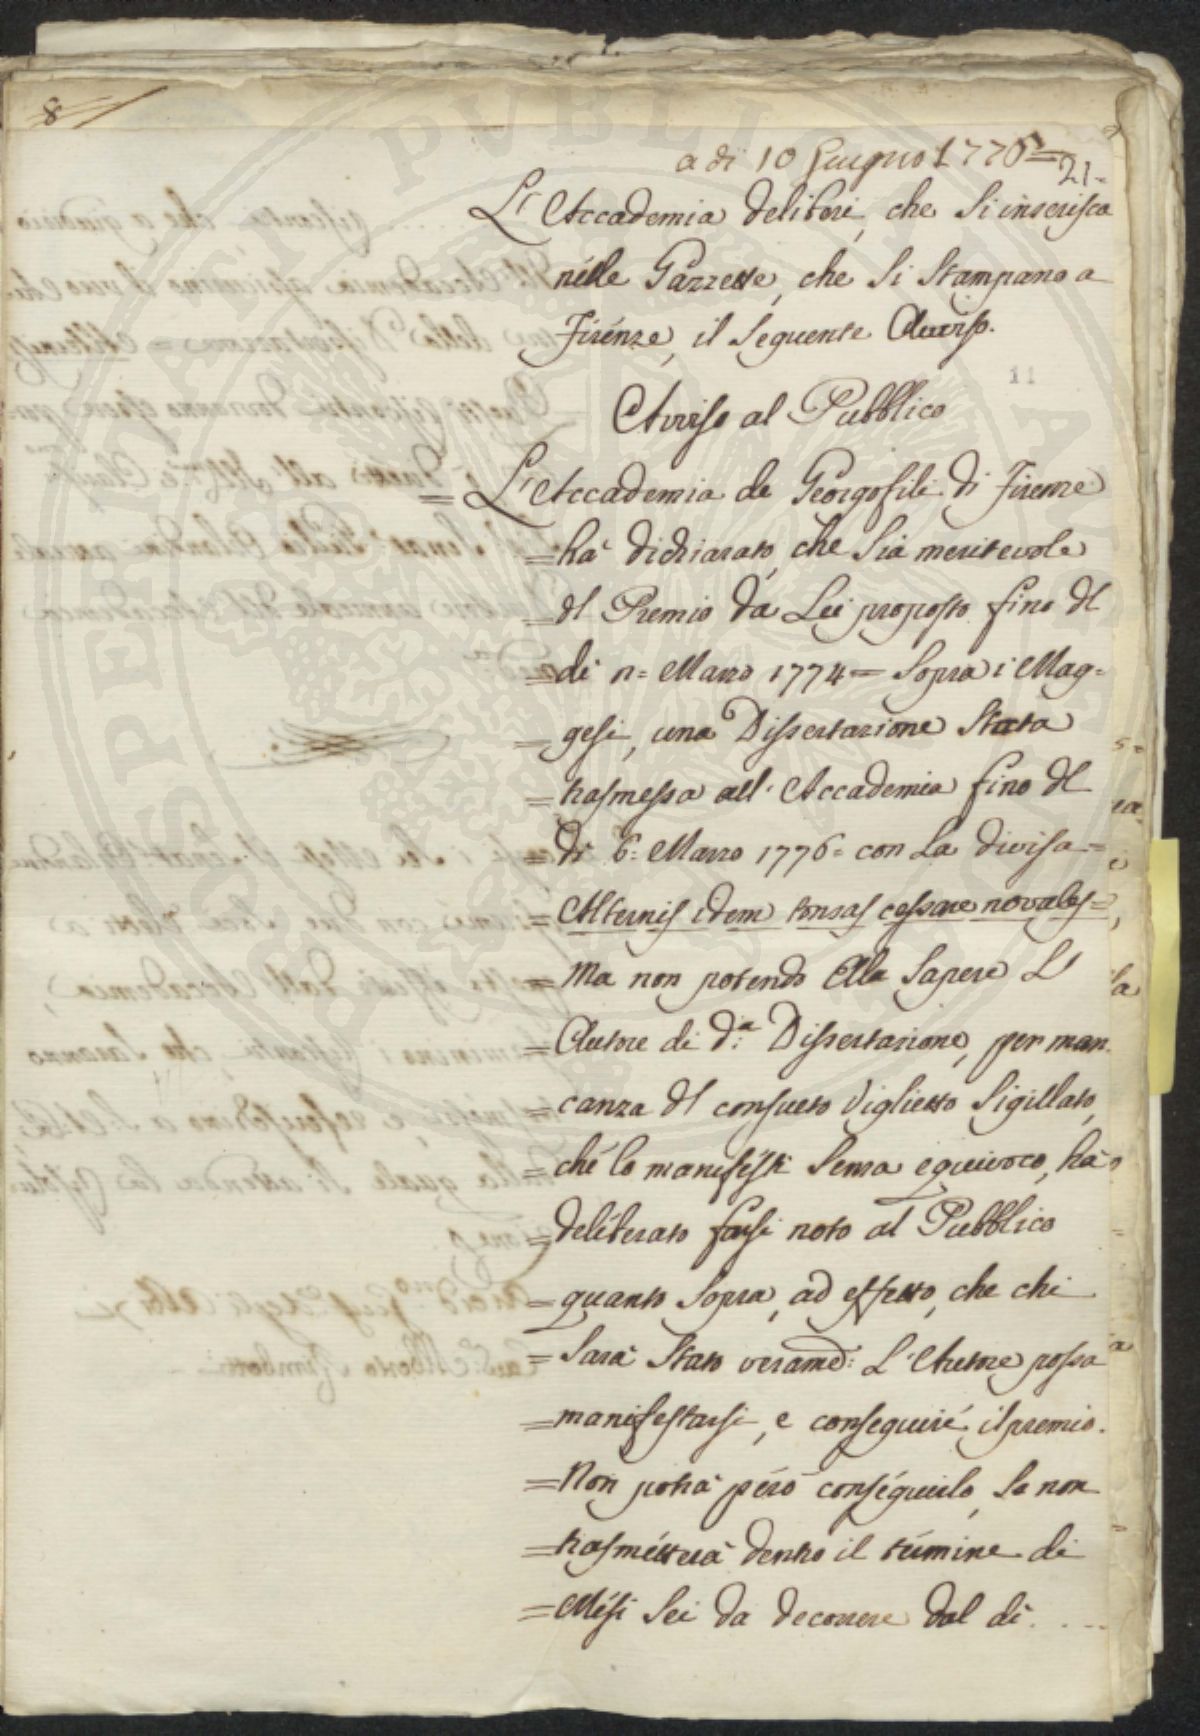 8
a di 10 Giugno 1776=
21=
L'Accademia deliberi, che si inserisca
nelle Gazzette, che si stampano a
Firenze, il seguente Avviso.
11
Avviso al Pubblico
= L'Accademia de Georgofili di Firenze
= ha dichiarato, che sia meritevole
= del Premio da Lei proposto fino del
= di n= Marzo 1774= sopra i Mag=
= gesi, una Dissertazione stata
= trasmessa all'Accademia fino del
= di 6= Marzo 1776= con la divisa=
= Alternis idem tonsas cessare novales=
= Ma non potendo Ella sapere L'
= Autore di d.a Dissertazione, per man
= canza del consueto Viglietto sigillato,
= che lo manifesti senza equivoco, ha
= deliberato farsi noto al Pubblico
= quanto sopra, ad effetto, che chi
= sarà stato veram.e: L'Autore possa
= manifestarsi, e conseguire il premio.
= Non potrà però conseguirlo, se non
= trasmetterà dentro il termine di
= Mesi sei da decorrere dal di ....